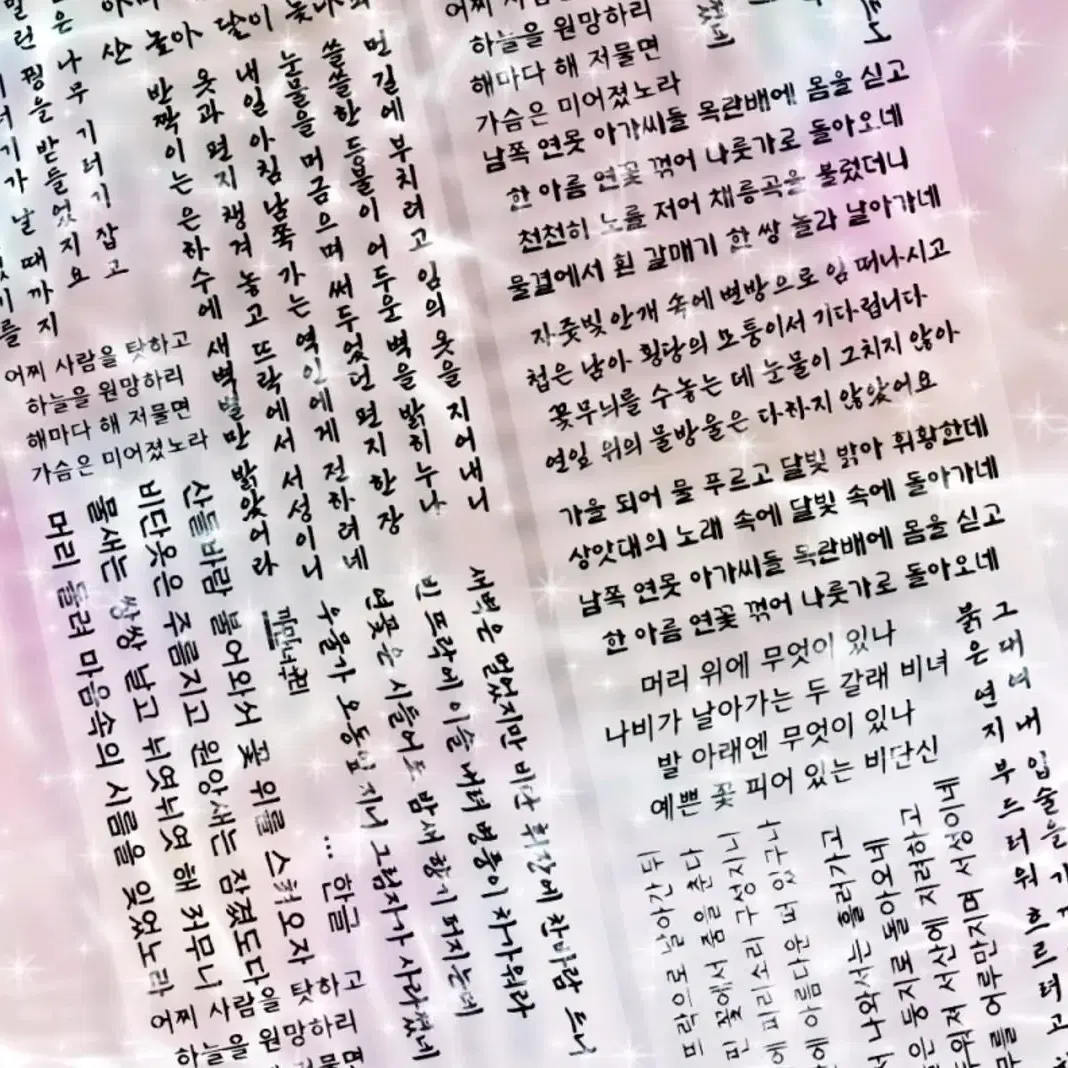 어찌 사람을 탓하고
하늘을 원망하리
해마다 해 저물면
가슴은 미어졌노라
하늘을 원망하리
해마다 해 저물면
가슴은 미어졌노라
남쪽 연못 아가씨들 목란배에 몸을 싣고
한 아름 연꽃 꺾어 나룻가로 돌아오네
천천히 노를 저어 채릉곡을 불렀더니
물결에서 흰 갈매기 한 쌍 놀라 날아가네
자줏빛 안개 속에 변방으로 임 떠나시고
첩은 남아 횡당의 모퉁이서 기다립니다
꽃무늬를 수놓는 데 눈물이 그치지 않아
연잎 위의 물방울은 다하지 않았어요
가을 되어 물 푸르고 달빛 밝아 휘황한데
상앗대의 노래 속에 달빛 속에 돌아가네
남쪽 연못 아가씨들 목란배에 몸을 싣고
한 아름 연꽃 꺾어 나룻가로 돌아오네
머리 위에 무엇이 있나
나비가 날아가는 두 갈래 비녀
발 아래엔 무엇이 있나
예쁜 꽃 피어 있는 비단신
먼 길에 부치려고 임의 옷을 지어내니
쓸쓸한 등불이 어두운 벽을 밝히누나
눈물을 머금으며 써 두었던 편지 한 장
내일 아침 남쪽 가는 역인에게 전하려네
옷과 편지 챙겨 놓고 뜨락에서 서성이니
반짝이는 은하수에 새벽별만 밝았어라
새벽은 멀었지만 비단 휘장에 찬바람 드니
빈 뜨락에 이슬 내려 병풍이 차가워라
연꽃은 시들어도 밤새 향기 퍼지는데
우물가 오동잎 지니 그림자가 사라졌네
산들바람 불어와서 꽃 위를 스쳐오자
비단옷은 주름지고 원앙새는 잠겼도다
물새는 쌍쌍 날고 뉘엿뉘엿 해 저무니
머리 돌려 마음속의 시름을 잊었노라
… 한글
어찌 사람을 탓하고
하늘을 원망하리
그대여 내 입술을
붉은 연지 부드러워 흐르려고
뜨락으로 날아간다
꽃에서 춤을 춘다
피리소리 구성지니
아름다운 벗 있구나
나와서는 흘러가고
둥지로 돌아오네
서산에 지려하고
어루만지며 서성이네